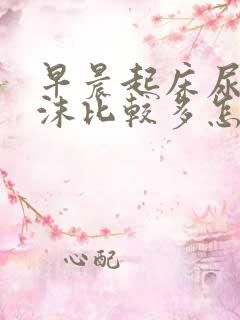 早晨起床尿
沫比较多怎
心配